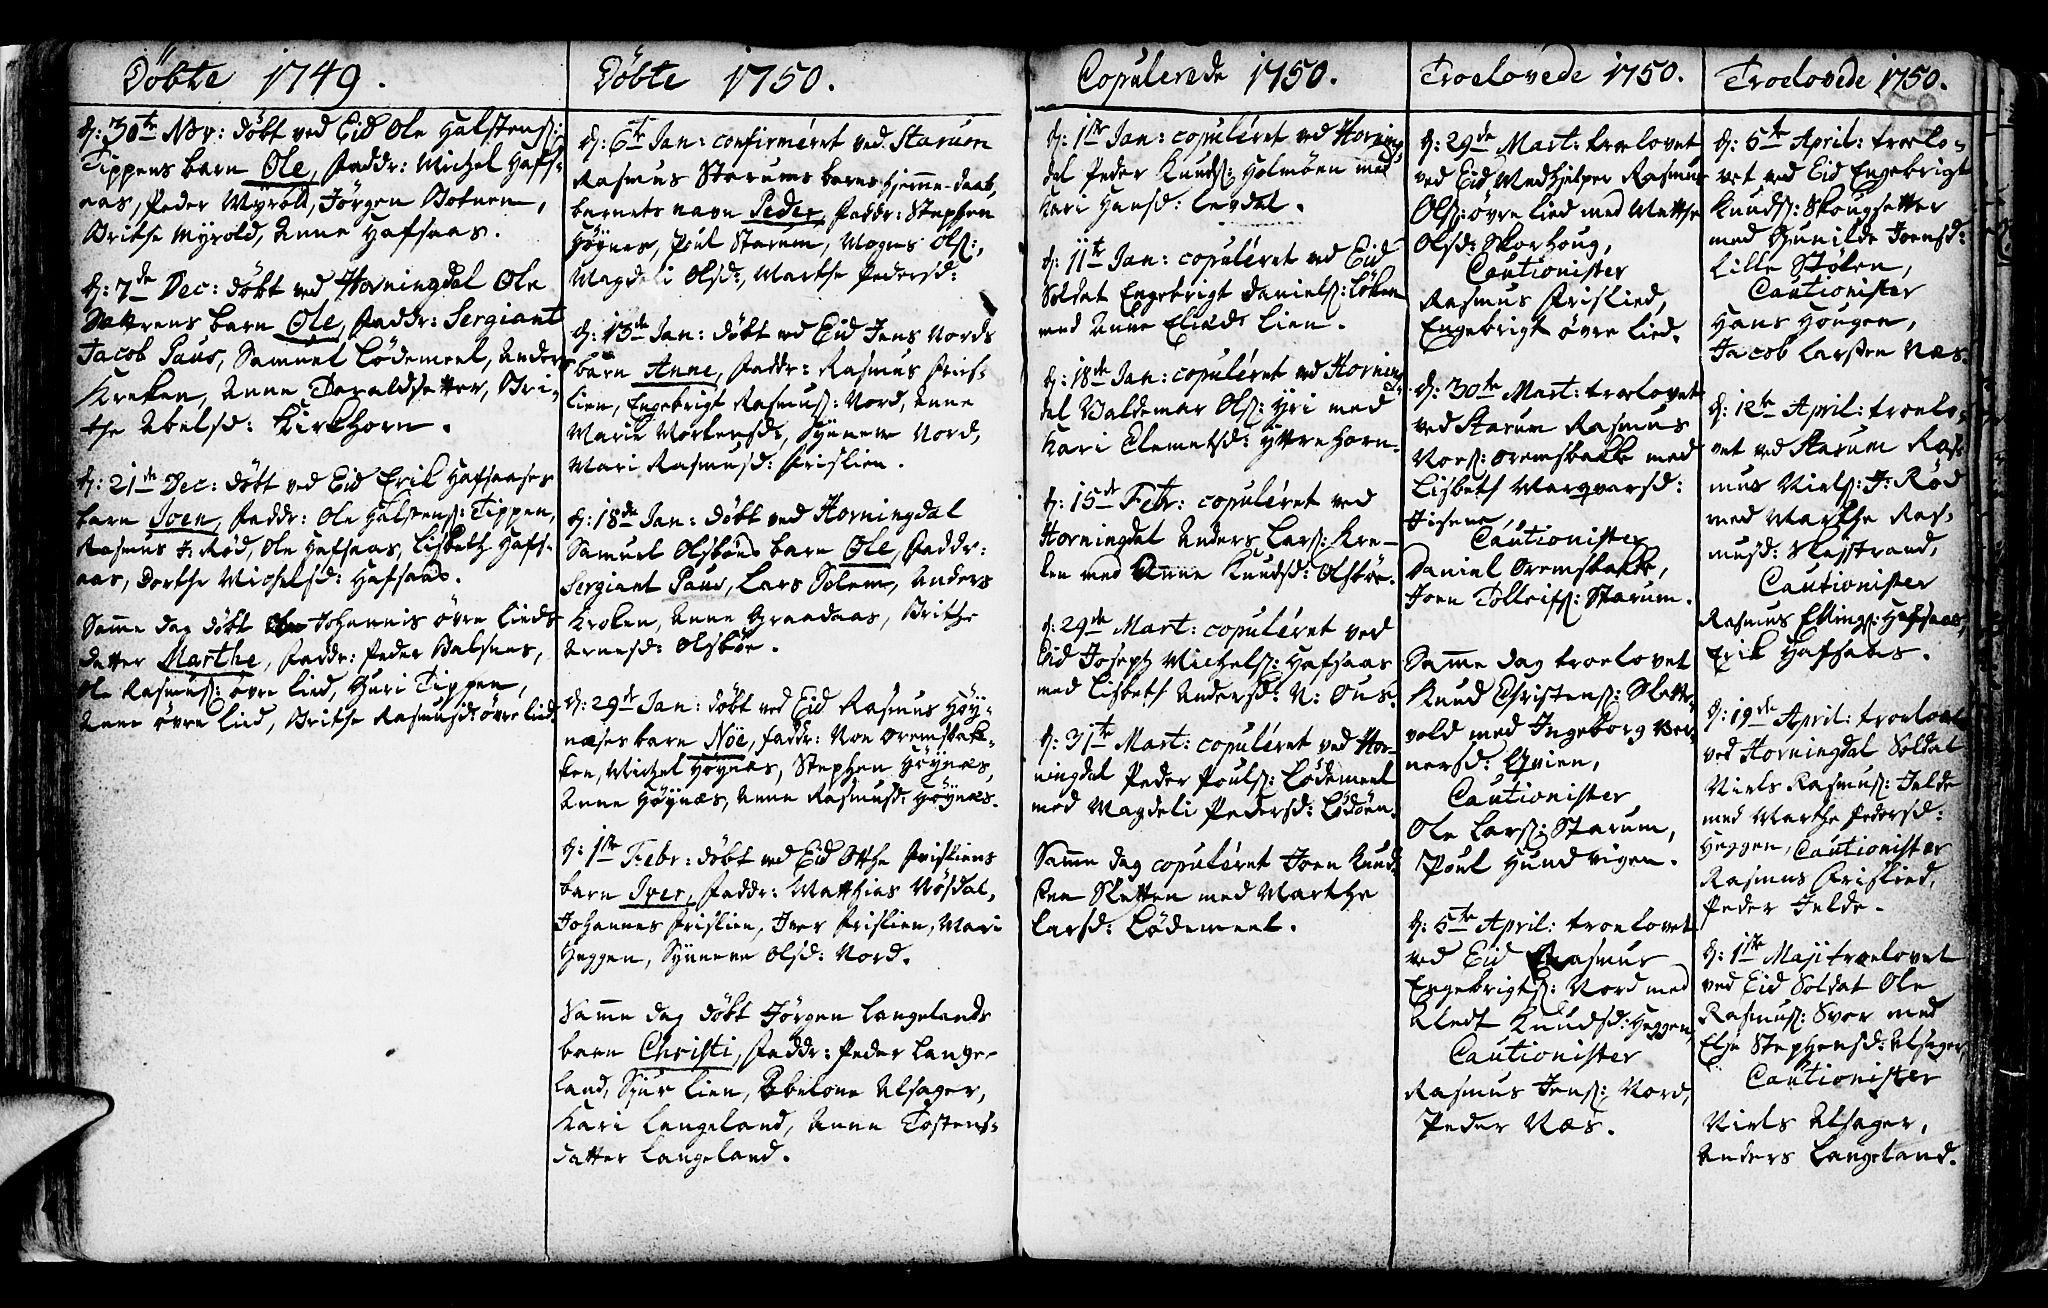 Döbte 1749.
d: 30te Nov: döbt ved Eid Ole Halstens:
Tippens barn Ole, Faddr: Michel Hafs-
aas, Peder Myrold, Jörgen Botnen,
Brithe Myrold, Anne Hafsaas.
d: 7de Dec: döbt ved Horningdal Ole
Sættrens barn Ole, Faddr: Sergiant
Jacob Paus, Samuel Lödemeel, Anders
Kroken, Anne Taraldsetter, Bri-
the Abelsd: Kirkhorn.
d: 21de Dec: döbt ved Eid Erik Hafsaases
barn Joen, Faddr: Ole Halstens: Tippen,
Rasmus J: Röd, Ole Hafsaas, Lisbeth Hafs-
aas, Dorthe Michelsd: Hafsaas.
Samme dag döbt Johannis övre Lieds
datter Marthe, Faddr: Peder Balsnes,
Ole Rasmus: övre Lied, Guri Tippen,
Anne övre Lied, Brithe Rasmusd: övre Lied.
Döbte 1750.
d: 6te Jan: confirméret ved Staruen
Rasmus Starums barns hjemme-daab,
barnets navn Peder, Faddr: Stephen
Höynes, Poul Starum, Mogns Ols:,
Magdeli Olsd:, Marthe Pedersd:
d: 13de Jan: döbt ved Eid Jens Nords
barn Anne, Faddr: Rasmus Fris-
lien, Engebrigt Rasmus: Nord, Anne
Marie Mortensd:, Synneve Nord,
Mari Rasmusd: Frislien.
d: 18de Jan: döbt ved Horningdal
Samuel Olsböns barn Ole, Faddr:
Sergiant Paus, Lars Solem, Anders
Kroken, Anne Graadaas, Brithe
Arnesd: Olsböe.
d: 29de Jan: döbt ved Eid Rasmus Höy-
næses barn Nöe, Faddr: Non Oremsbak-
ken, Michel Höynæs, Stephen Höynæs,
Anne Höynæs, Anne Rasmusd: Höynæs.
d: 1ste Febr: döbt ved Eid Otthe Frisliens
barn Iver, Faddr: Matthias Nösdal,
Johannes Frislien, Iver Frislien, Mari
Heggen, Synneve Olsd: Nord.
Samme dag döbt Jörgen Langelands
barn Christi, Faddr: Peder Lange-
land, Sjur Lien, Abelone Alsager,
Kari Langeland, Anne Tostens-
datter Langeland.
Copulerede 1750.
d: 1ste Jan: copuléret ved Horning
dal Peder Knuds: Holmöen med
Kari Hansd: Levdal.
d: 11te Jan: copuléret ved Eid
Soldat Engebrigt Daniels: Löken
med Anne Eliæd: Lien.
d: 18de Jan: copuléret ved Horning
dal Valdemar Ols: Yri med
Kari Clemetsd: Yttrehorn.
d: 15de Febr: copuléret ved
Horningdal Anders Lars: Kro-
ken med Anne Knudsd: Olsböe.
d: 29de Mart: copuléret ved
Eid Joseph Michels: Hafsaas
med Lisbeth Andersd: N: Ous.
d: 31te Mart: copuléret ved Hor-
ningdal Peder Pouls: Lödemeel
med Magdeli Pedersd: Lödöen.
Samme dag copuléret Joen Knud-
sen Sletten med Marthe
Larsd: Lödemeel.
Troelovede 1750.
d: 29de Mart: troelovet
ved Eid Medhielper Rasmus
Ols: övre Lied med Marthe
Olsd: Skorhoug,
Cautionister
Rasmus Frislied,
Engebrigt övre Lied.
d: 30te Mart: troelovet
ved Starum Rasmus
Nons: Oremsbakke med
Lisbeth Margvarsd:
Cautionister
Daniel Oremsbakke,
Joen Tolleifs: Starum.
Samme dag troelovet
Knud Christens: Slette-
vold med Ingeborg Ver-
nersd: Qvien,
Cautionister
Ole Lars: Starum,
Poul Hundvigen.
d: 5te April: troelovet
ved Eid Rasmus
Engebrigts: Nord med
Aledt Knudsd: Heggen,
Cautionister
Rasmus Jens: Nord,
Peder Næs.
Troelovede 1750.
d: 5te April: troelo-
vet ved Eid Engebrigt
Knuds: Skougsetter
med Gunilde Joensd:
Lille Stölen,
Cautionister
Hans Hougen,
Jacob Larssen Næs.
d: 12te April: troelo-
vet ved Starum Ras-
mus Niels: J: Röd
med Marthe Ras-
musd: Slagstrand,
Cautionister
Rasmus Ellings: Hafsaas,
Erik Hafsaas.
d: 19de April: troelovet
ved Horningdal Soldat
Niels Rasmus: Jelde
med Marthe Pedersd:
Heggen, Cautionister
Rasmus Frislied,
Peder Jelde.
d: 1ste Maji troelovet
ved Eid Soldat Ole
Rasmus: Svor med
Else Stephensd: Alsager,
Cautionister
Niels Alsager,
Anders Langeland.